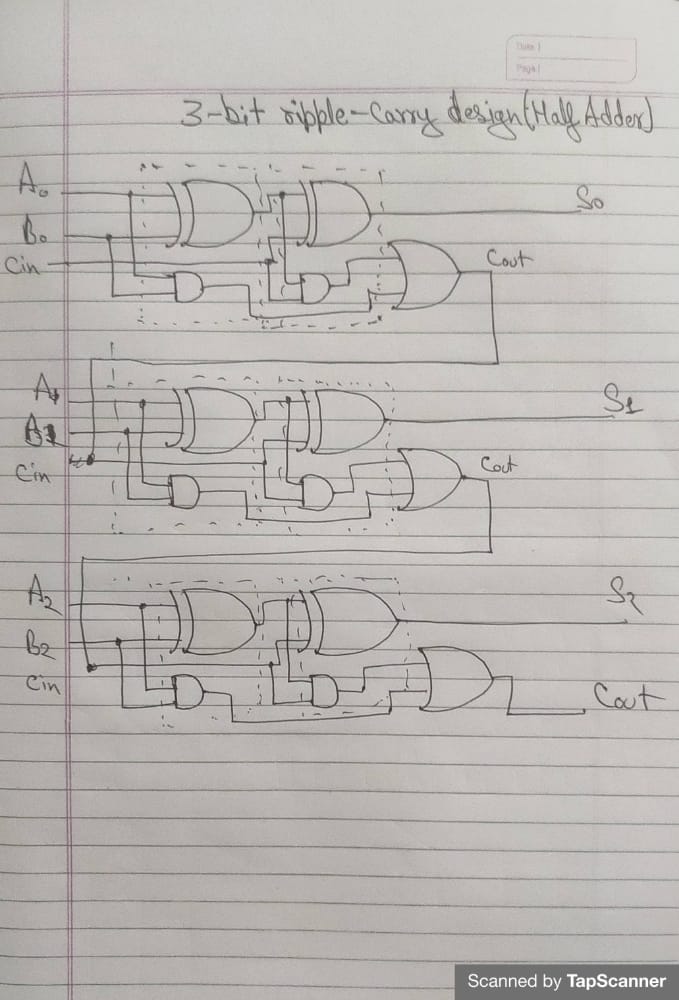 Date |
Page |
3-bit ripple-Carry design (Half Adder)
A0
S0
B0
Cin
Cout
A1
S1
Cin
Cout
A2
S2
B2
Cin
Cout
Scanned by TapScanner